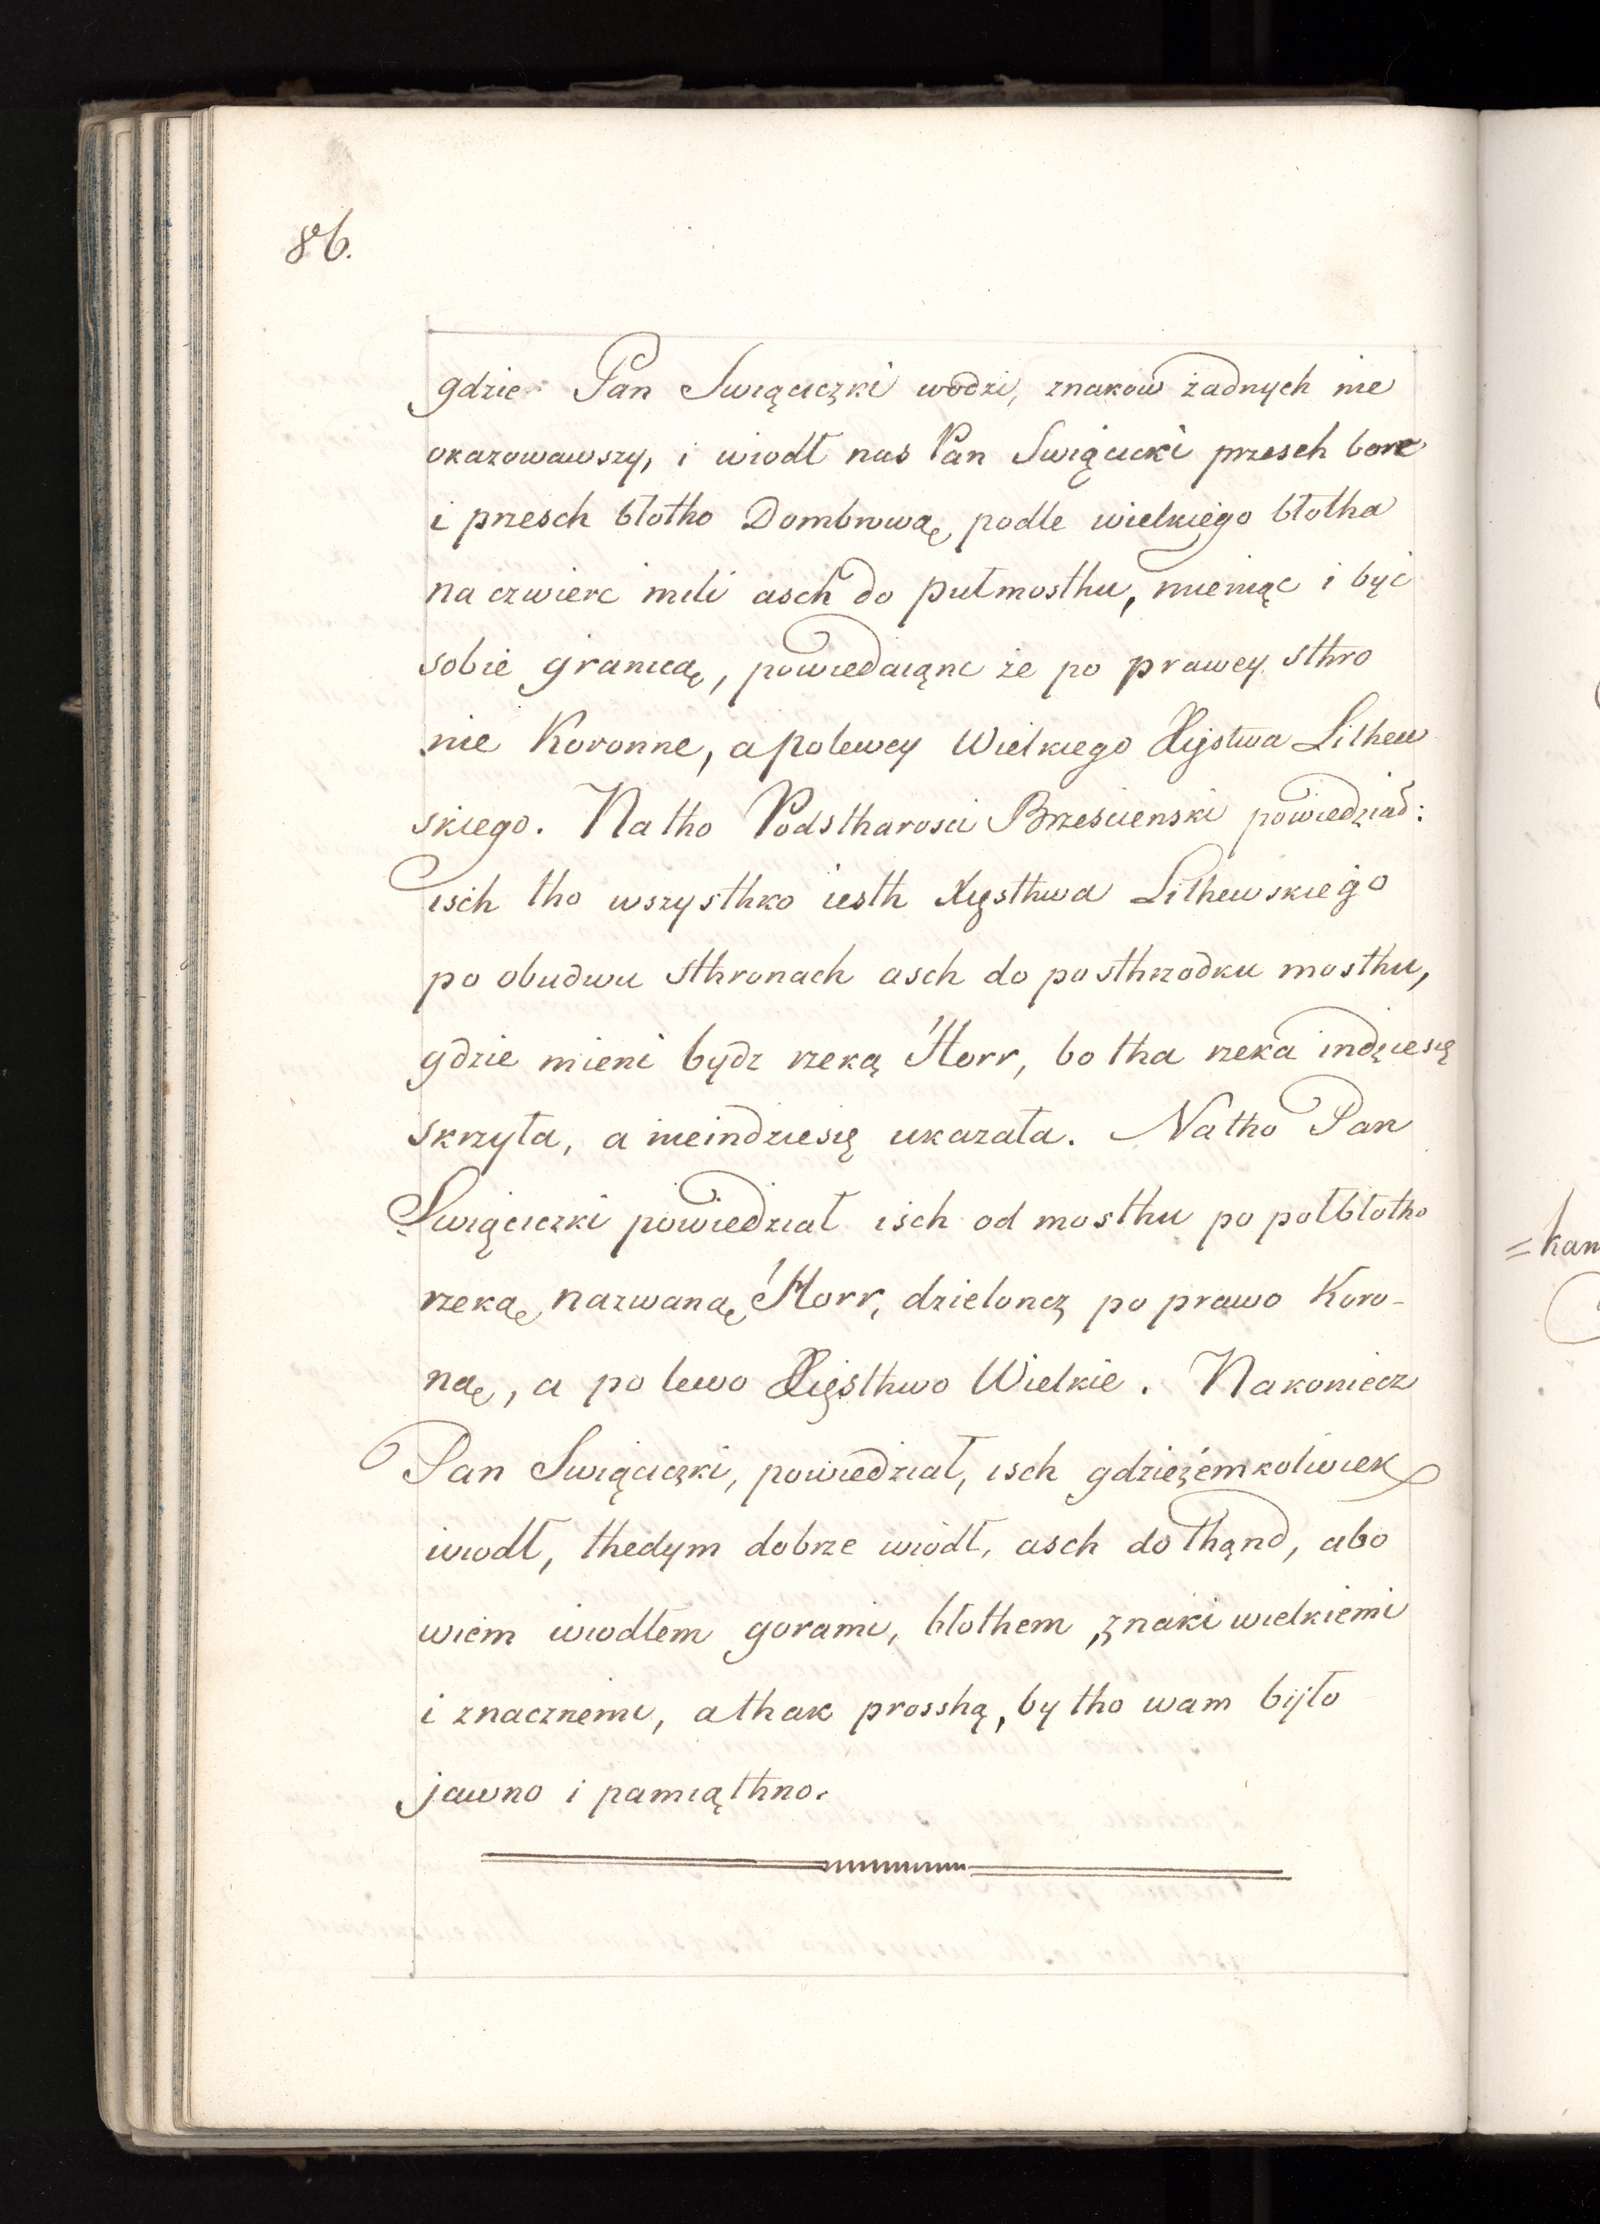 86.
gdzie Pan Swiąciczki wodzi, znakow żadnych nie
okazowawszy, i wiodł nas Pan Swiącicki przesch bore
i przesch błotho Dombrową, podle wielkiego błotha
na czwierc mili asch do pułmosthu, mieniąc i być
sobie granicą, powiedaiąnc że po prawey sthro
nie Koronne, a polewey Wielkiego Xięstwa Lithew
skiego. Na tho Podstharosci Brzescienski powiedział:
isch tho wszysthko iesth Xięsthwa Lithewskiego
po obudwu sthronach asch do posthrzodku mosthu,
gdzie mieni bydz rzeką Horr, bo tha rzeka indziesię
skrzyła, a nieindziesię ukazała. Na tho Pan
Swiąciczki powiedział isch od mosthu po połbłotho
rzeką, nazwaną Horr, dzieloncz po prawo Koro-
ną, a po lewo Xięsthwo Wielkie. Nakoniecz
Pan Swiąciczki, powiedział, isch gdzieżemkolwiek
wiodł, thedym dobrze wiodł, asch do thąnd, abo
wiem wiodłem gorami, błothem, znaki wielkiemi
i znacznemi, a thak prosshą, by tho wam było
jawno i pamiąthno.
=kam